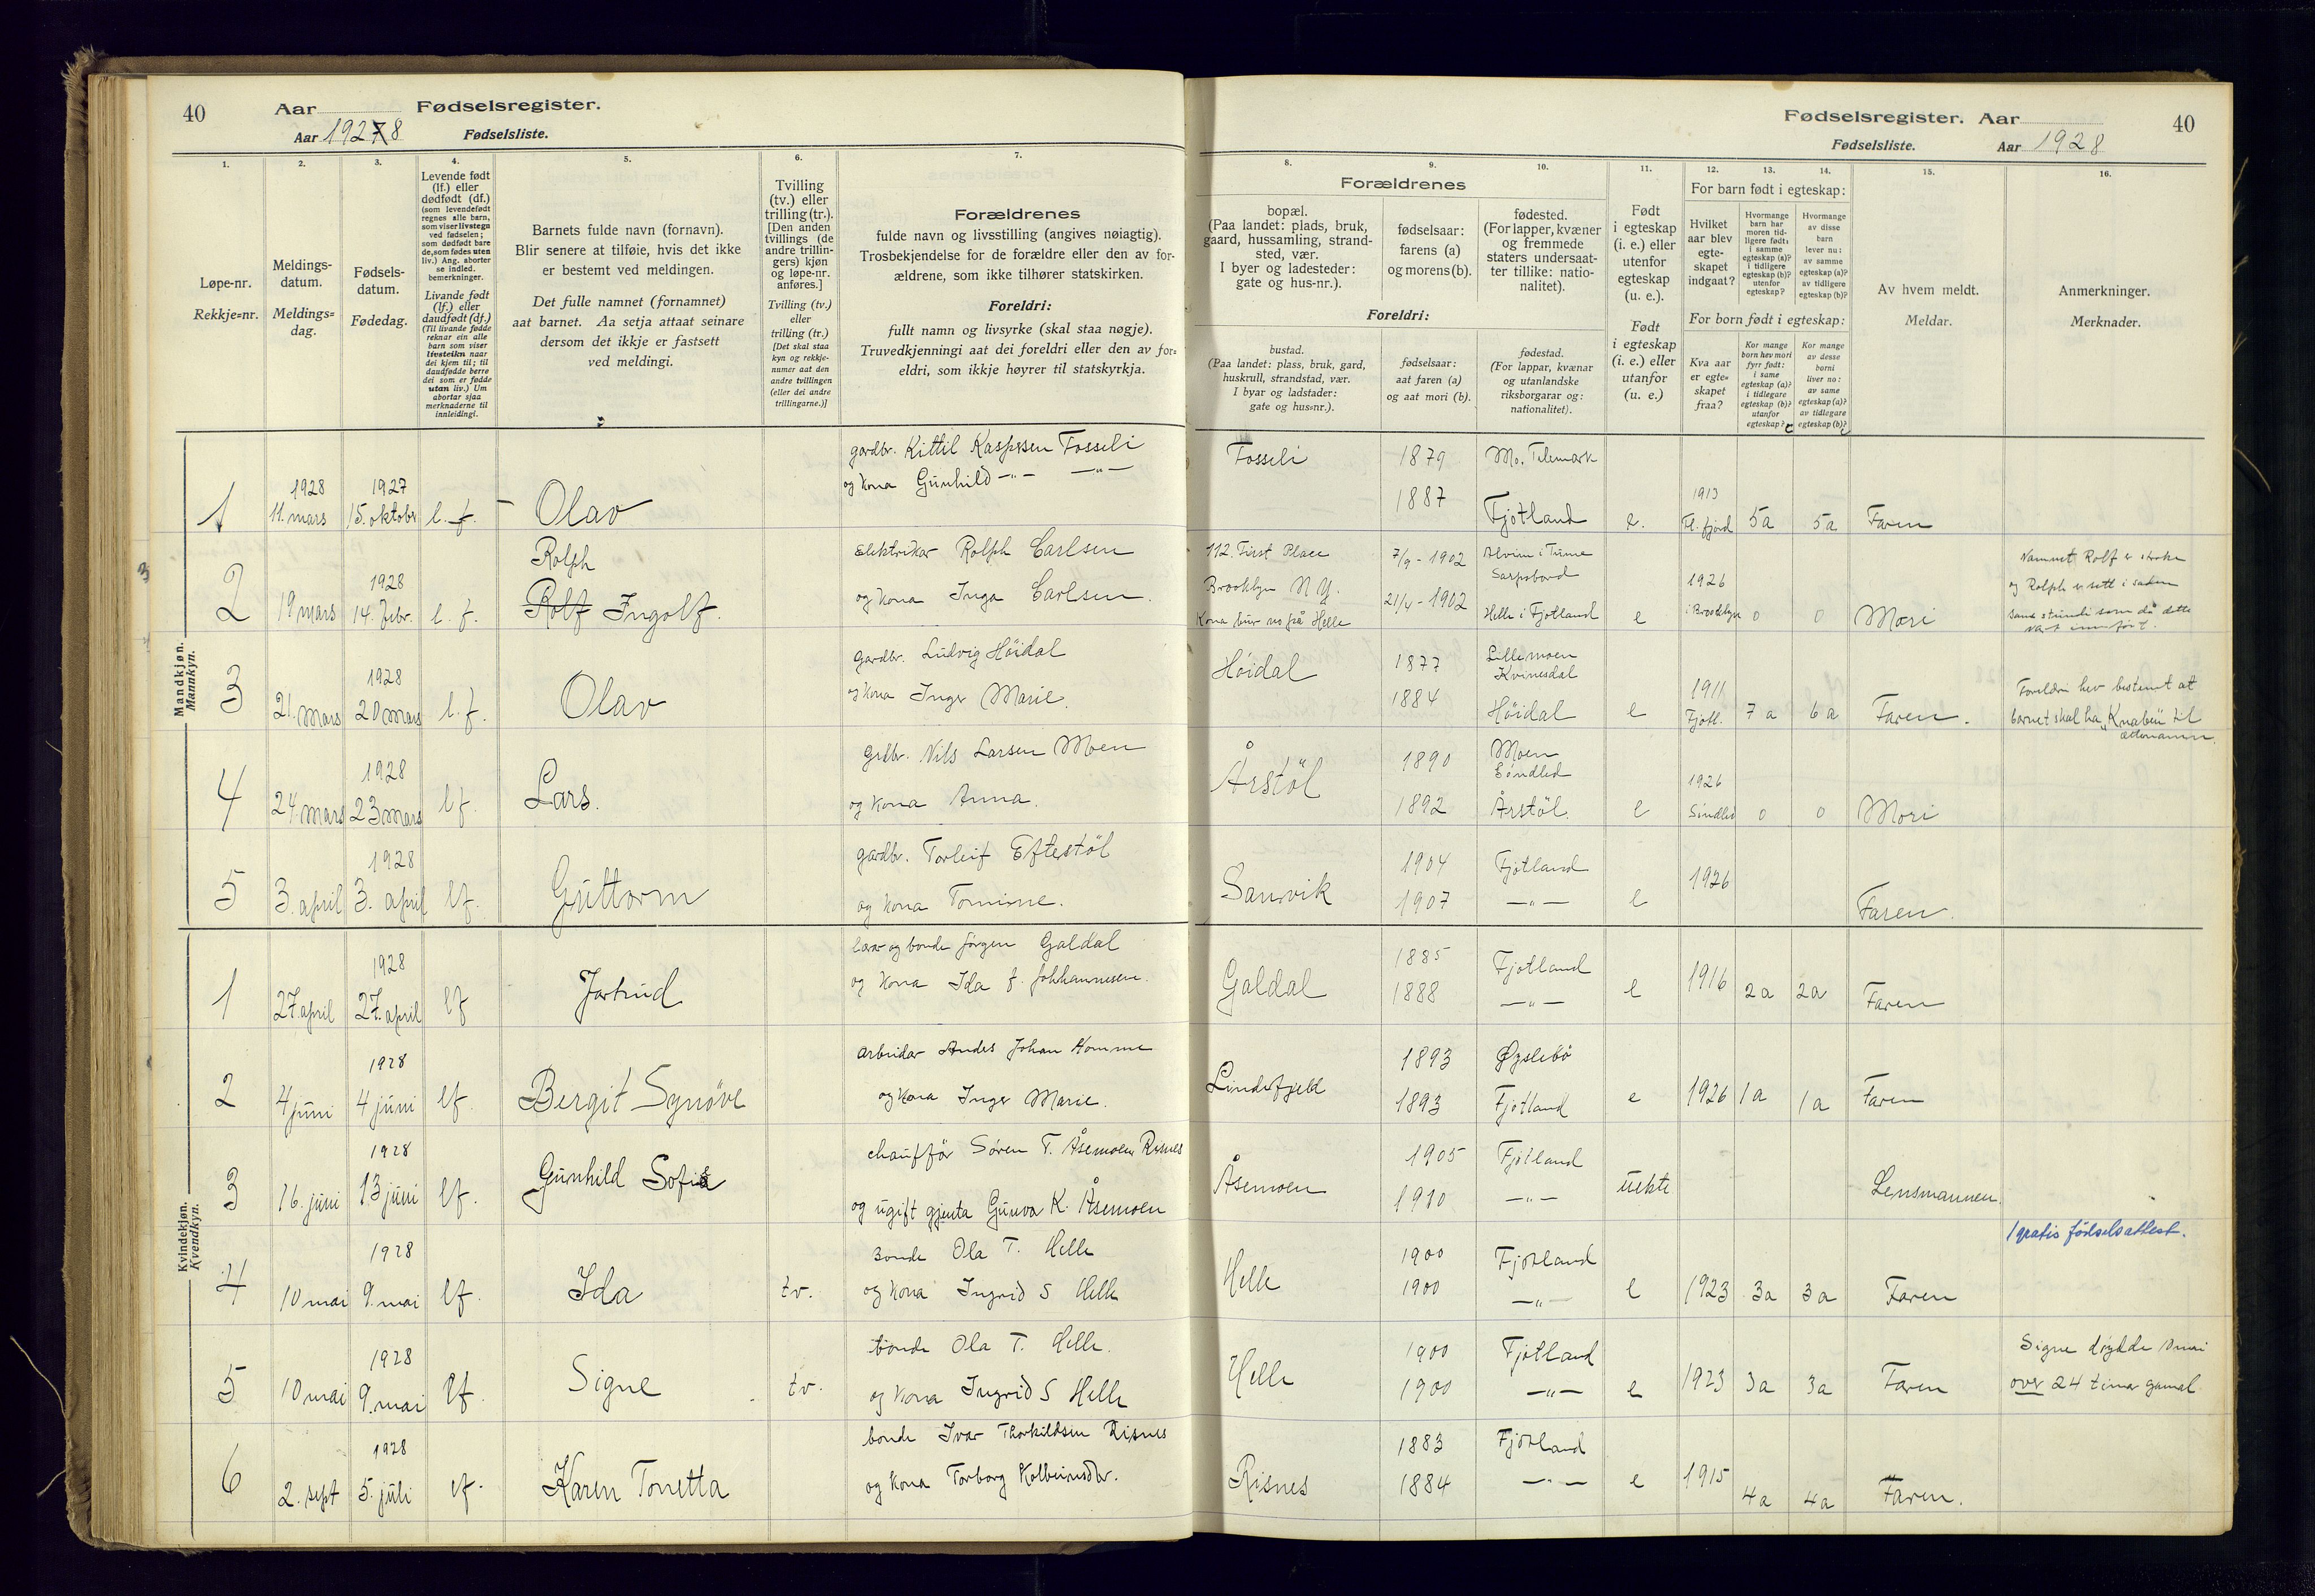 40
Aar
Fødselsregister.
Aar 1928
Fødselsliste.
1.
Løpe-nr.
Rekkje=nr.
2.
Meldings-
datum.
Meldings=
dag.
3.
Fødsels-
datum.
Fødedag.
4.
Levende født
(lf.) eller
dødfødt (df.)
(som levendefødt
regnes alle barn,
som viser livstegn
ved fødselen;
som dødfødt bare
de, som fødes uten
liv.) Ang. aborter
se indled.
bemerkninger.
Livande født
(lf.) eller
daudfødt (df.)
(Til livande fødde
reknar ein alle
barn som viser
livsteikn naar
dei kjem til; til
daudfødde berre
dei som er fødde
utan liv.) Um
abortar sjaa
merknaderne til
innleidingi.
5.
Barnets fulde navn (fornavn).
Blir senere at tilføie, hvis det ikke
er bestemt ved meldingen.
Det fulle namnet (fornamnet)
aat barnet. Aa setja attaat seinare
dersom det ikkje er fastsett
ved meldingi.
6.
Tvilling
(tv.) eller
trilling (tr.).
[Den anden
tvillings (de
andre trillin-
gers) kjøn
og løpe-nr.
anføres.]
Tvilling (tv.)
eller
trilling (tr.)
[Det skal staa
kyn og rekkje-
numer aat den
andre tvillingen
(eller dei andre
trillingarne.)]
7.
Forældrenes
fulde navn og livsstilling (angives nøiagtig).
Trosbekjendelse for de forældre eller den av for-
ældrene, som ikke tilhører statskirken.
Foreldri:
fullt namn og livsyrke (skal staa nøgje).
Truvedkjenningi aat dei foreldri eller den av for=
eldri, som ikkje høyrer til statskyrkja.
Fødselsregister. Aar
40
Fødselsliste.
Aar 1928
Forældrenes
8.
bopæl.
(Paa landet: plads, bruk,
gaard, hussamling, strand-
sted, vær.
I byer og ladesteder:
gate og hus-nr.).
9.
fødselsaar:
farens (a)
og morens (b).
10.
fødested.
(For lapper, kvæner
og fremmede
staters undersaat-
ter tillike: natio-
nalitet).
Foreldri:
bustad.
(Paa landet: plass, bruk, gard,
huskrull, strandstad, vær.
I byar og ladstader:
gate og hus=nr.).
fødselsaar:
aat faren (a)
og aat mori (b).
fødestad.
(For lappar, kvænar
og utanlandske
riksborgarar og:
nationalitet).
11.
Født
i egteskap
(i. e.) eller
utenfor
egteskap
(u. e.).
Født
i egteskap
(i. e.) eller
utanfor
(u. e.)
For barn født i egteskap:
12.
Hvilket
aar blev
egte-
skapet
indgaat?
13.
Hvormange
barn har
moren tid-
ligere født:
i samme
egteskap (a)?
i tidligere
egteskap (b)?
utenfor
egteskap?
14.
Hvormange
av disse
barn
lever nu:
av samme
egteskap (a)?
av tidligere
egteskap (b)?
For born født i egteskap:
Kva aar
er egte=
skapet
fraa?
Kor mange
born hev mori
fyrr født:
i same
egteskap (a)?
i tidlegare
egteskap (b)?
utanfor
egteskap?
Kor mange
av desse
borni
liver no:
av same
egteskap (a)?
av tidlegare
egteskap (b)?
15.
Av hvem meldt.
Meldar.
16.
Anmerkninger.
Merknader.
Mandkjøn.
Mannkyn.
gardbr. Kittil Kaspersen Fosseli
og kona Gunhild -"- -"-
1 1928 11. mars 1927 15. oktober l. f. Olav
Fosseli 1879 Mo. Telemark
1887 Fjotland e. 1913 Fl. fjord 5a 5a Faren
Rolph
Elektriker Rolph Carlsen
2 19 mars 1928 14. febr. l. f. Rolf Ingolf. og kona Inga Carlsen.
112. First Place 7/9 - 1902 Alvim i Tune Sarpsbord
Brooklyn N.Y. 21/4 - 1902 Helle i Fjotland e 1926 i Brooklyn 0 0 Mori
Kona bur no på Helle
Namnet Rolf er stroke
og Rolph er sett i saden
same stundi som då dette
vart innført.
gardbr. Ludvig Höidal
3 21. mars 1928 20 mars l. f. Olav og kona Inger Marie.
Höidal 1877 Lillemoen Kvinesdal
1884 Höidal e 1911 Fjotl. 7 a 6 a Faren.
Foreldri hev bestemt at
barnet skal ha "Knaben" til
ættenamn.
grdbr. Nils Larsen Moen
4 24. mars 1928 23 mars lf. Lars. og kona Anna.
Årstöl 1890 Moen Söndled
1892 Årstöl. e 1926 Söndled 0 0 Mori
gardbr. Torleif Eftestöl
5 3. april 1928 3. april lf. Guttorm og kona Tomine.
Sanvik 1904 Fjotland
1907 -"- e 1926 Faren.
Kvindekjøn.
Kvendkyn.
lærar og bonde Jörgen Galdal
1 27. april 1928 27. april lf Jortrud og kona Ida f. Johhannesen.
Galdal 1885 Fjotland
1888 -"- e 1916 2a 2a Faren
arbeidar Andes Johan Homme
2 4 juni 1928 4 juni lf. Bergit Synöve og kona Inger Marie.
Lindefjeld 1893 Øyslebö
1893 Fjotland e 1926 1a 1a Faren
chaufför Sören T. Åsemoen Risnes
3 16. juni 1928 13 juni lf. Gunhild Sofie og ugift gjenta Gunva K. Åsemoen
Åsemoen 1905 Fjotland
1910 -"- uekte Lensmannen.
1 gratis fødselsattest.
bonde Ola T. Helle
4 10 mai 1928 9. mai lf. Ida tv. og kona Ingrid S Helle
Helle 1900 Fjotland
1900 -"- e 1923 3a 3a Faren
bonde Ola T. Helle.
5 10 mai 1928 9. mai lf. Signe tv. og kona Ingrid S Helle
Helle 1900 Fjotland
1900 -"- e 1923 3a 3a Faren
Signe döydde 10 mai
over 24 timar gamal
bonde Ivar Thorkildsen Risnes
6 2. sept 1928 5. juli lf. Karen Tonetta og kona Torborg Kolbeinsdtr.
Risnes 1883 Fjotland
1884 -"- e 1915 4a 4a Faren.